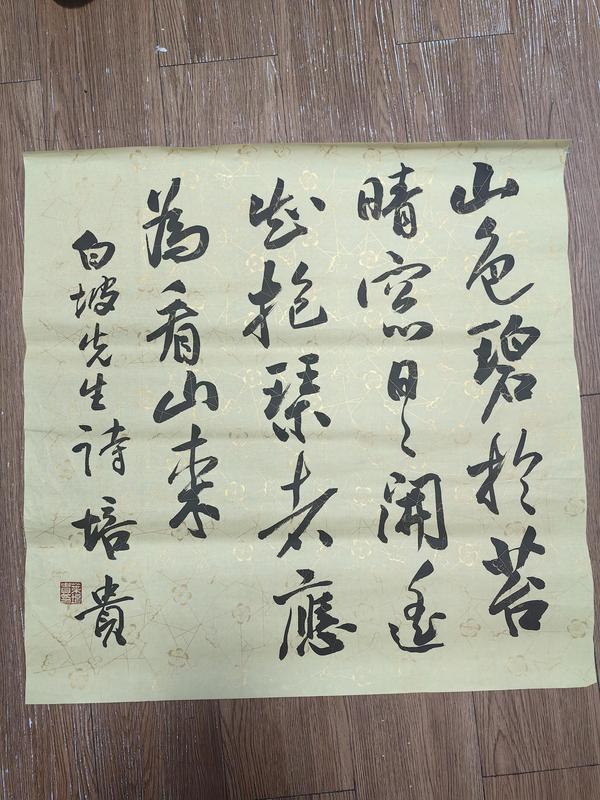 山色碧於苔
晴窓日々開遙
知抱琴者應
為看山來
白坡先生詩 培貴